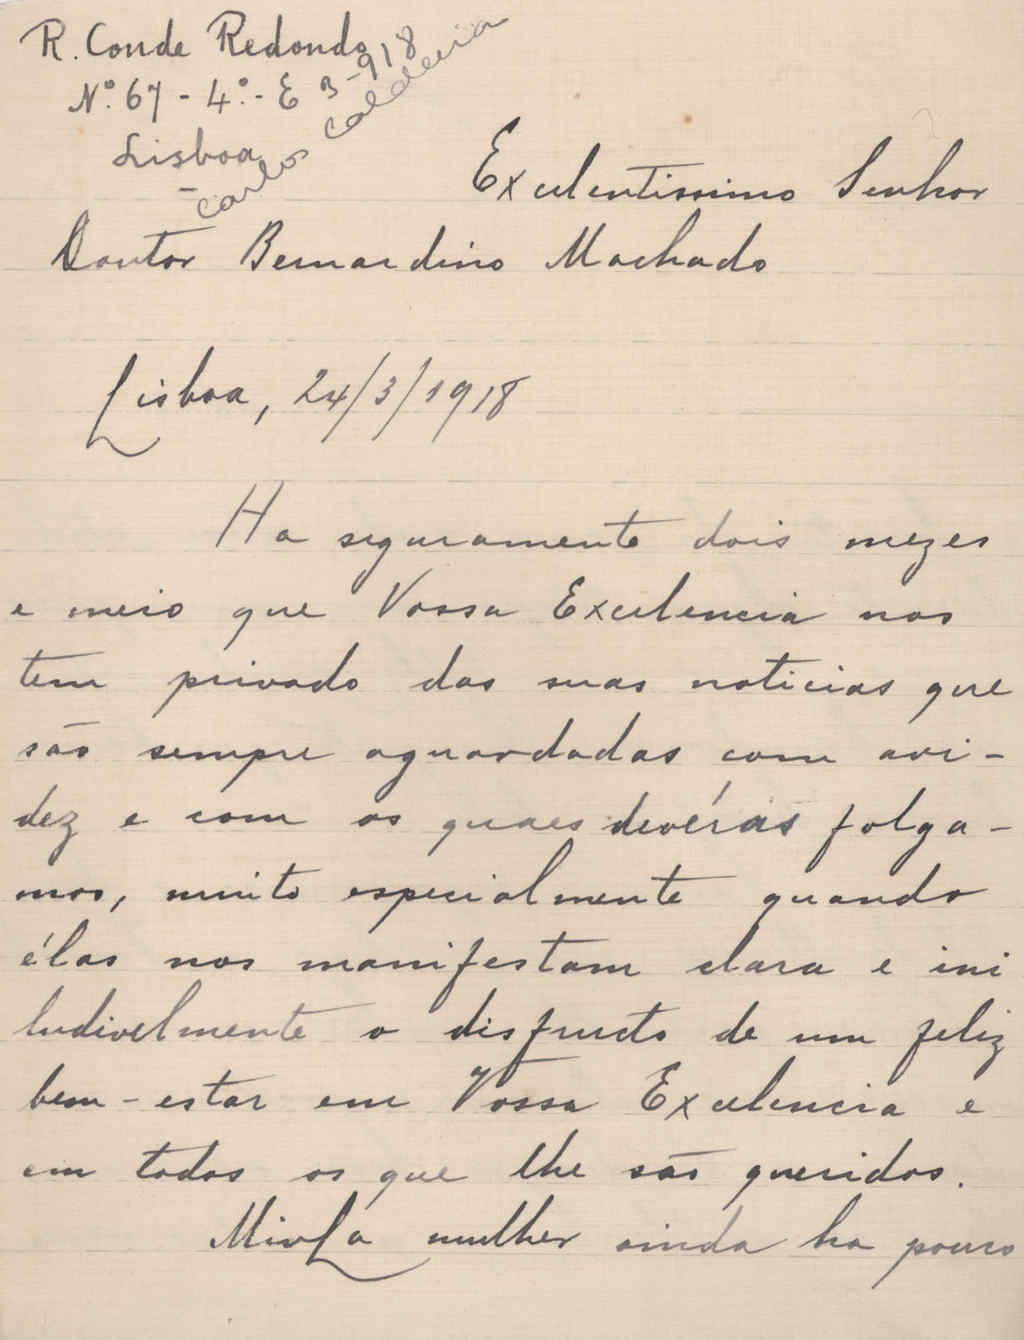 R. Conde Redondo
Nº. 67 - 4º. - E
Lisboa
3-918
Carlos Caldeira
Excelentissimo Senhor
Doutor Bernardino Machado
Lisboa, 24/3/1918
Ha seguramente dois mezes
e meio que Vossa Excelencia nos
tem privado das suas noticias que
são sempre aguardadas com avi-
dez e com as quaes devéras folga-
mos, muito especialmente quando
élas nos manifestam clara e ini
ludivelmente o disfructo de um feliz
bem-estar em Vossa Excelencia e
em todos os que lhe são queridos.
Minha mulher ainda ha pouco